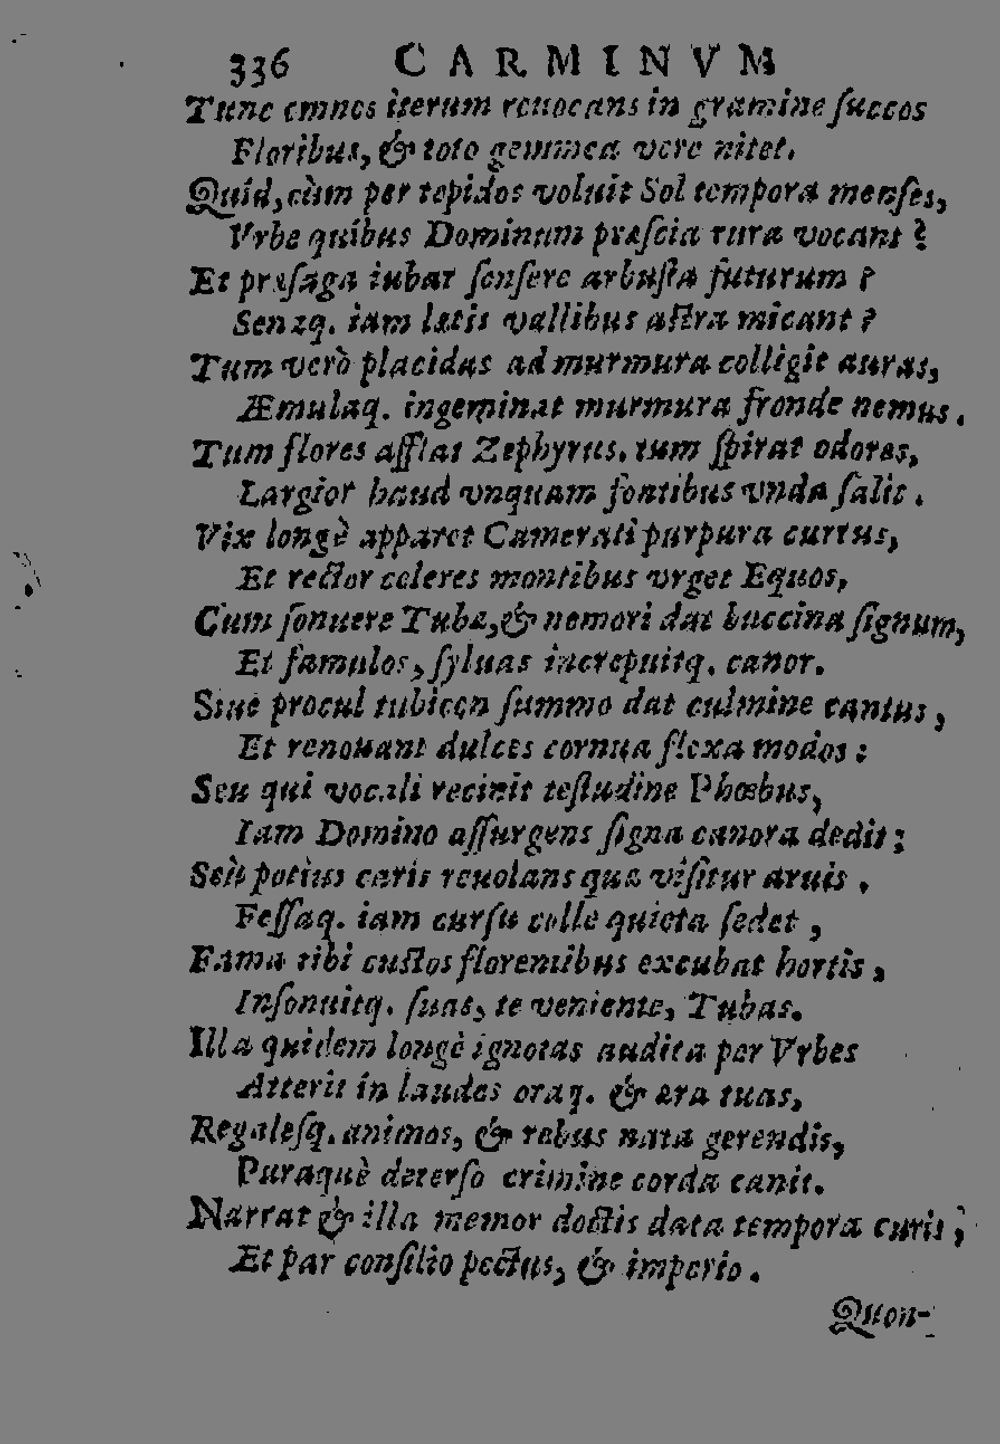 336 CARMINVM
Tunc omnes iterum reuocans in gramine ſuccos
Floribus, & toto gemmea vere nitet.
Quid, cùm per tepidos voluit Sol tempora menſes,
Vrbe quibus Dominum præſcia rura vocant?
Et præſaga iubar ſenſere arbuſta futurum?
Senaq. iam lætis vallibus aſtra micant?
Tum verò placidas ad murmura colligit auras,
Æmulaq. ingeminat murmura fronde nemus.
Tum flores afflat Zephyrus, tum ſpirat odores,
Largior haud vnquam fontibus vnda ſalit.
Vix longè apparet Camerati purpura currus,
Et rector celeres montibus vrget Equos,
Cum ſonuere Tubæ, & nemori dat buccina ſignum,
Et famulos, ſyluas increpuitq. canor.
Siue procul tubicen ſummo dat culmine cantus,
Et renouant dulces cornua flexa modos:
Seu qui vocali recinit teſtudine Phœbus,
Iam Domino aſſurgens ſigna canora dedit;
Seù potius caris reuolans qua viſitur aruis,
Feſſaq. iam curſu colle quieta ſedet,
Fama tibi cuſtos florentibus excubat hortis,
Inſonuitq. ſuas, te veniente, Tubas.
Illa quidem longè ignotas audita per Vrbes
Atterit in laudes oraq. & æra tuas,
Regaleſq. animos, & rebus nata gerendis,
Puraquè deterſo crimine corda canit.
Narrat & illa memor doctis data tempora curis;
Et par conſilio pectus, & imperio.
Quon-